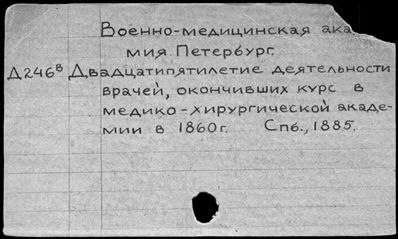 Военно-медицинская ака
мия Петербург.
Д246в Двадцатипятилетие деятельности
врачей, окончивших курс в
медико-хирургической акаде-
мии в 1860г. Спб., 1885.